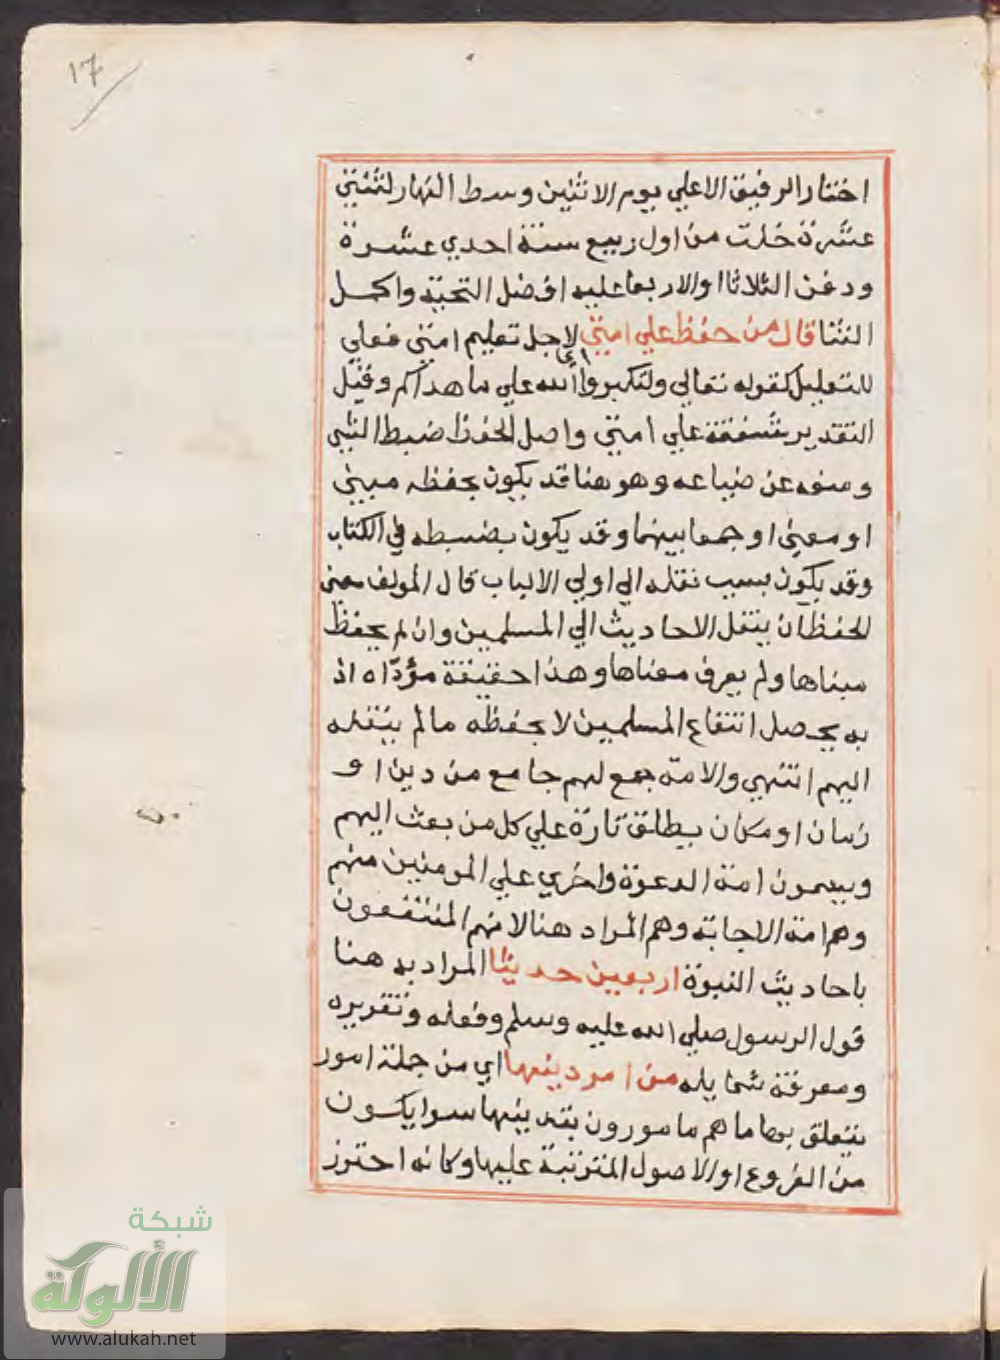 ١٦
اختار الرفيق الاعلي يوم الاثنين وسط النهار لثنتي
عشرة خلت من اول ربيع سنة احدي عشرة
ودفن الثلاثا او الاربعا عليه افضل التحية واكمل
الثنا قال من حفظ علي امتي لاجل تعليم امتي فعلي
للتعليل كقوله تعالي ولتكبروا الله علي ما هداكم وقيل
التقدير شفقة علي امتي واصل الحفظ ضبط الشي
ومنعه عن ضياعه وهو هنا قد يكون بحفظه مبني
او معني او جمعا بينهما وقد يكون بضبطه في الكتاب
وقد يكون بسبب نقله الي اولي الالباب قال المولف معني
الحفظ ان ينقل الاحاديث الي المسلمين وان لم يحفظ
مبناها ولم يعرف معناها وهذا حقيقة مؤدّاه اذ
به يحصل انتفاع المسلمين لا بحفظه ما لم ينقله
اليهم انتهي والامة جمع لهم جامع من دين او
زمان او مكان يطلق تارة علي كل من بعث اليهم
ويسمون امة الدعوة واخري علي المومنين منهم
وهم امة الاجابة وهم المراد هنا لانهم المنتفعون
باحاديث النبوة اربعين حديثا المراد به هنا
قول الرسول صلي الله عليه وسلم وفعله وتقريره
ومعرفة شمايله من امر دينها اي من جملة امور
يتعلق بها ما هم مامورون بتدينها سوا يكون
من الفروع او الاصول المترتبة عليها وكانه احترز
شبكة
الألوكة
www.alukah.net